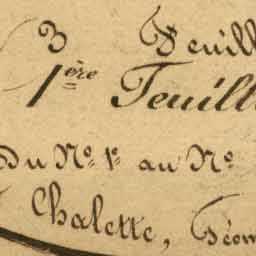 3 Feuill
1ère Feuill
Du No. 1er au No.
Chalette, Géom